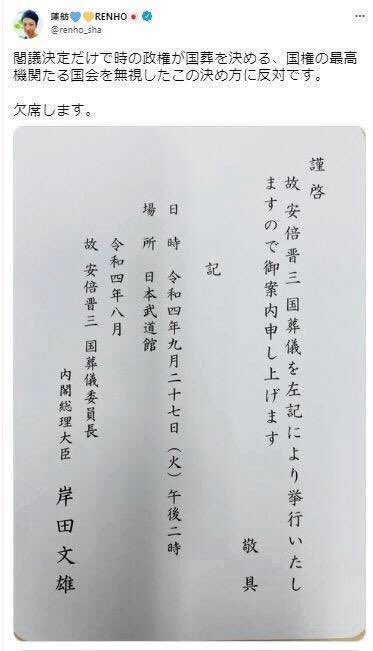 蓮舫💙💛RENHO🇯🇵
@renho_sha
閣議決定だけで時の政権が国葬を決める、国権の最高
機関たる国会を無視したこの決め方に反対です。
欠席します。
謹啓
故 安倍晋三 国葬儀を左記により挙行いたし
ますので御案内申し上げます
敬具
記
日時 令和四年九月二十七日（火）午後二時
場所 日本武道館
令和四年八月
故 安倍晋三 国葬儀委員長
内閣総理大臣 岸田文雄